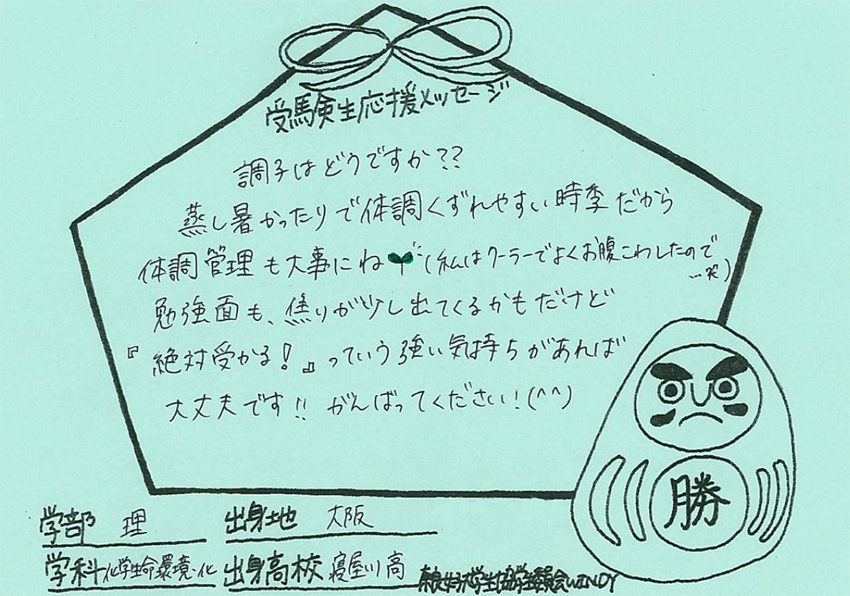 受験生応援メッセージ
調子はどうですか??
蒸し暑かったりで体調くずれやすい時季だから
体調管理も大事にね(私はクーラーでよくお腹こわしたので…笑)
勉強面も、焦りが少し出てくるかもだけど
『絶対受かる!』っていう強い気持ちがあれば
大丈夫です!! がんばってください!(^^)
勝
学部 理 出身地 大阪
学科 化学生命環境・化 出身高校 寝屋川高
奈良女子大学生協学生委員会WINDY